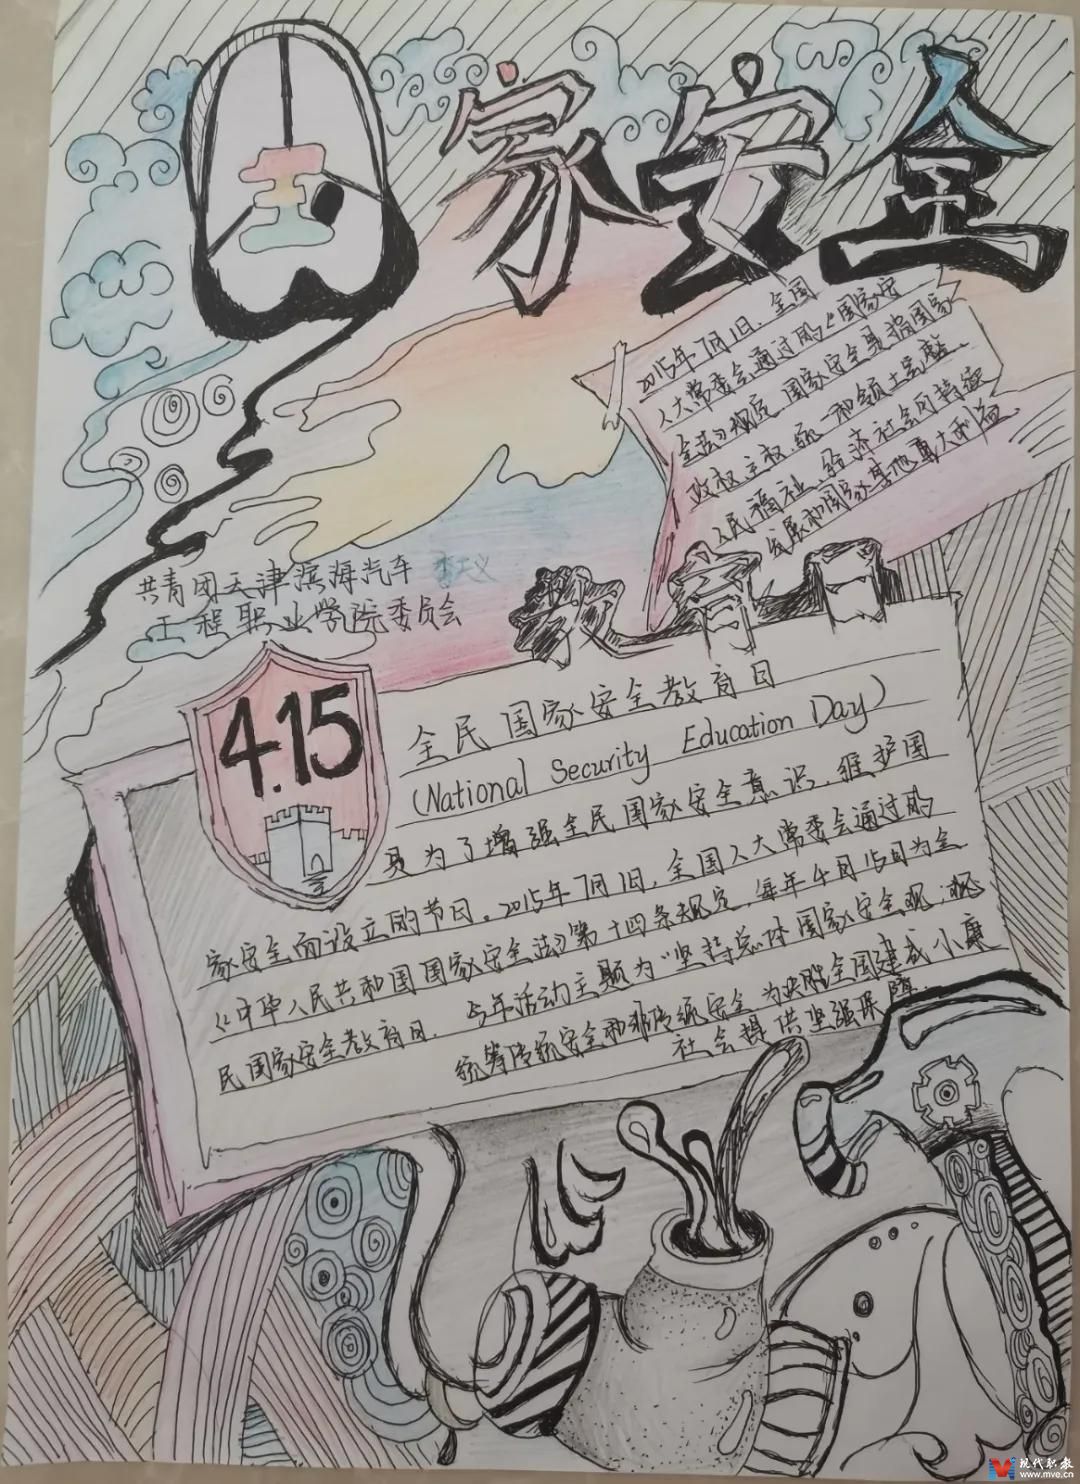 国家安全
2015年7月1日，全国
人大常委会通过的《国家安
全法》规定 国家安全是指国家
政权、主权、统一和领土完整、
人民福祉、经济社会可持续
发展和国家其他重大利益
共青团天津滨海汽车
工程职业学院委员会
教育日
4.15
全民国家安全教育日
(National Security Education Day)
是为了增强全民国家安全意识，维护国
家安全而设立的节日。2015年7月1日，全国人大常委会通过的
《中华人民共和国国家安全法》第十四条规定，每年4月15日为全
民国家安全教育日。今年活动主题为“坚持总体国家安全观，
统筹传统安全和非传统安全 为决胜全国建成小康
社会提供坚强保障.
现代职教
www.mve.cn